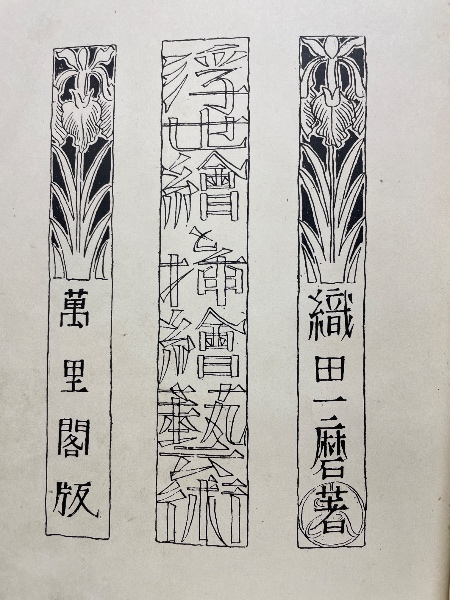 織田一磨著
浮世繪と挿繪藝術
萬里閣版